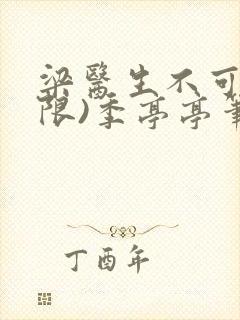 梁醫生不可
限)季亭亭筆
丁酉年